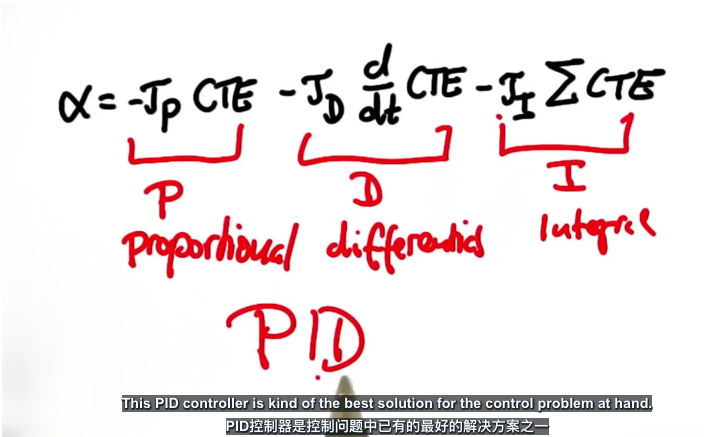 α = -τp CTE - τD d/dt CTE - τI Σ CTE
P D I
proportional differential integral
PID
This PID controller is kind of the best solution for the control problem at hand.
PID控制器是控制问题中已有的最好的解决方案之一